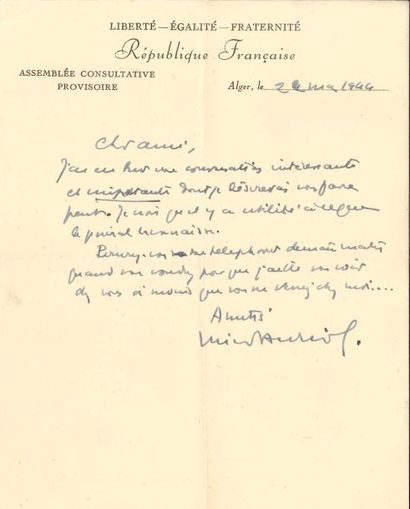 LIBERTÉ — ÉGALITÉ — FRATERNITÉ
République Française
ASSEMBLÉE CONSULTATIVE
PROVISOIRE
Alger, le 24 mai 1944
Cher ami,
J'ai eu hier une conversation intéressante
et importante dont je désirerais vous faire
part. Je crois qu'il y a utilité à ce que
le général connaisse.
Pouvez-vous me téléphoner demain matin
quand vous voudrez pour que j'aille vous voir
chez vous à moins que vous ne veniez chez moi....
Amitiés
Vincent Auriol.